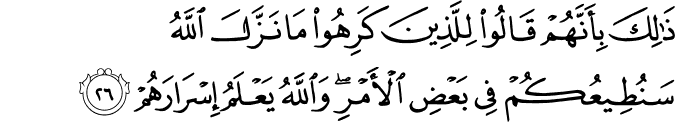 ذَٰلِكَ بِأَنَّهُمۡ قَالُواْ لِلَّذِينَ كَرِهُواْ مَا نَزَّلَ ٱللَّهُ
سَنُطِيعُكُمۡ فِي بَعۡضِ ٱلۡأَمۡرِۖ وَٱللَّهُ يَعۡلَمُ إِسۡرَارَهُمۡ ٢٦